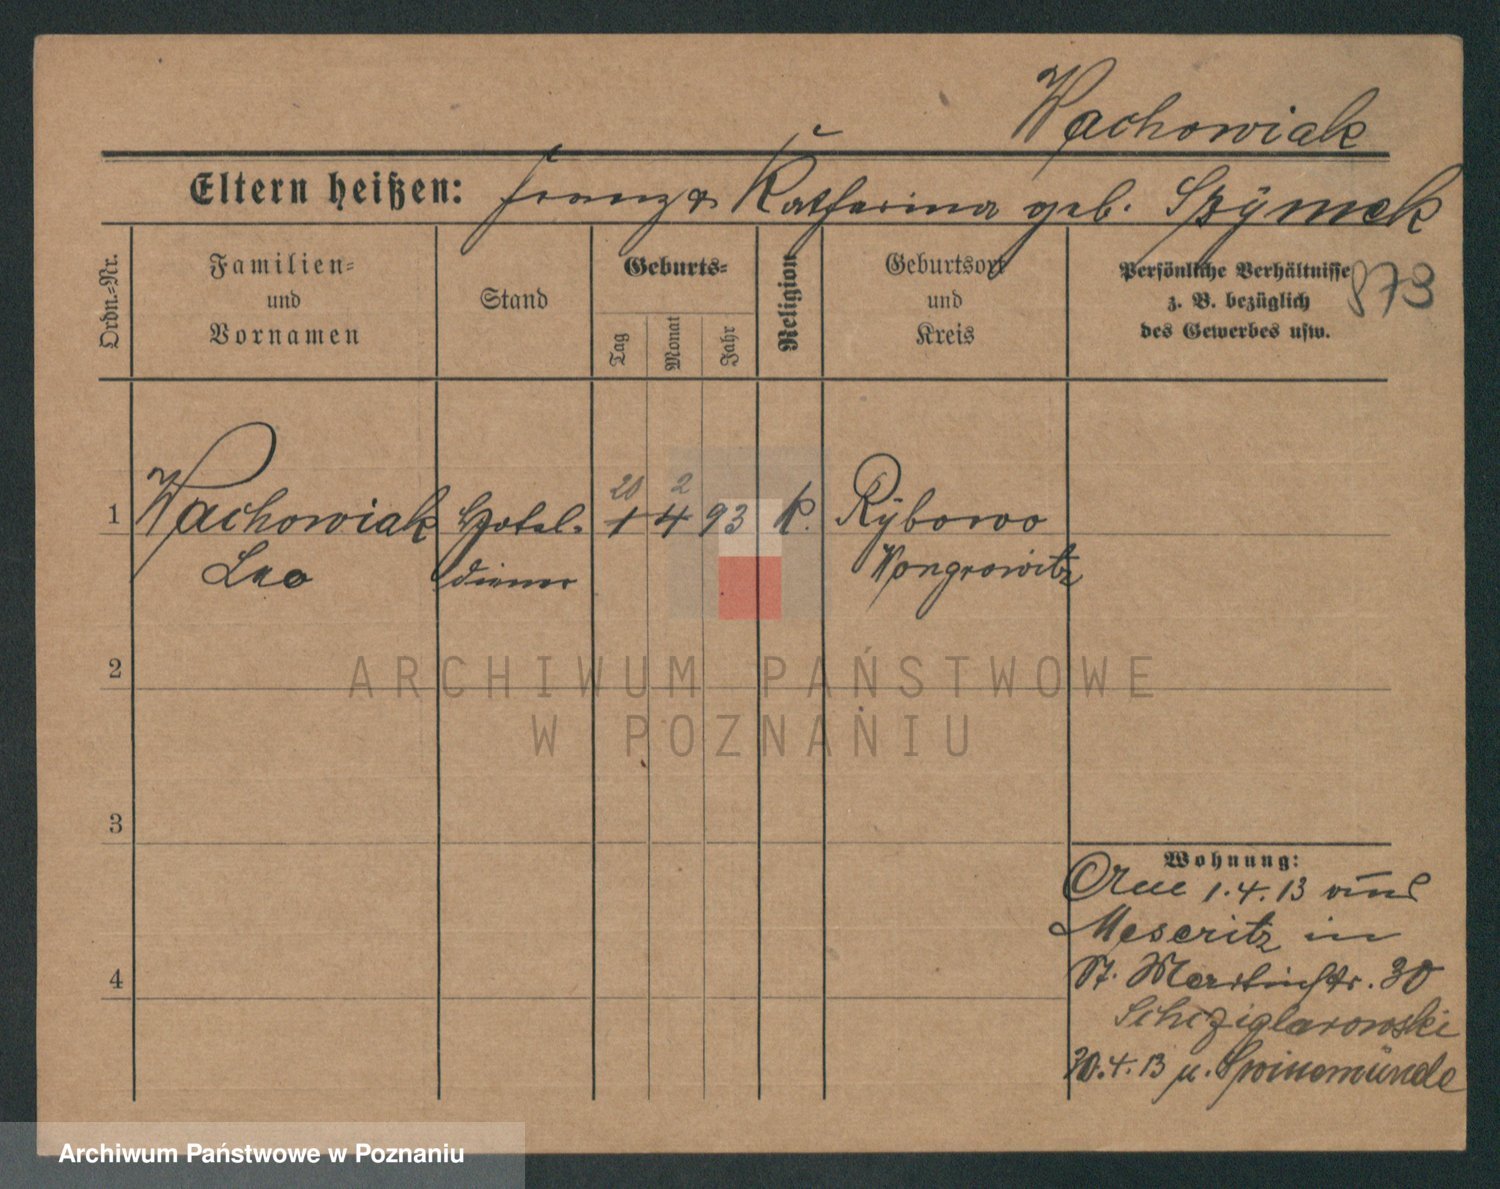 Wachowiak
Eltern heißen: Franz & Katharina geb. Szÿmek
Ordn.-Nr.
Familien-
und
Vornamen
Stand
Geburts-
Tag
Monat
Jahr
Religion
Geburtsort
und
Kreis
Persönliche Verhältnisse
z. B. bezüglich
des Gewerbes usw.
873
20 2
1 Wachowiak Hotel- 1 4 93 K. Rÿbowo
Leo diener Wongrowitz
2
3
4
Wohnung:
1.4.13
Meseritz in
St. Martinstr. 30
30.4.13 n. Swinemünde
ARCHIWUM PAŃSTWOWE
W POZNANIU
Archiwum Państwowe w Poznaniu